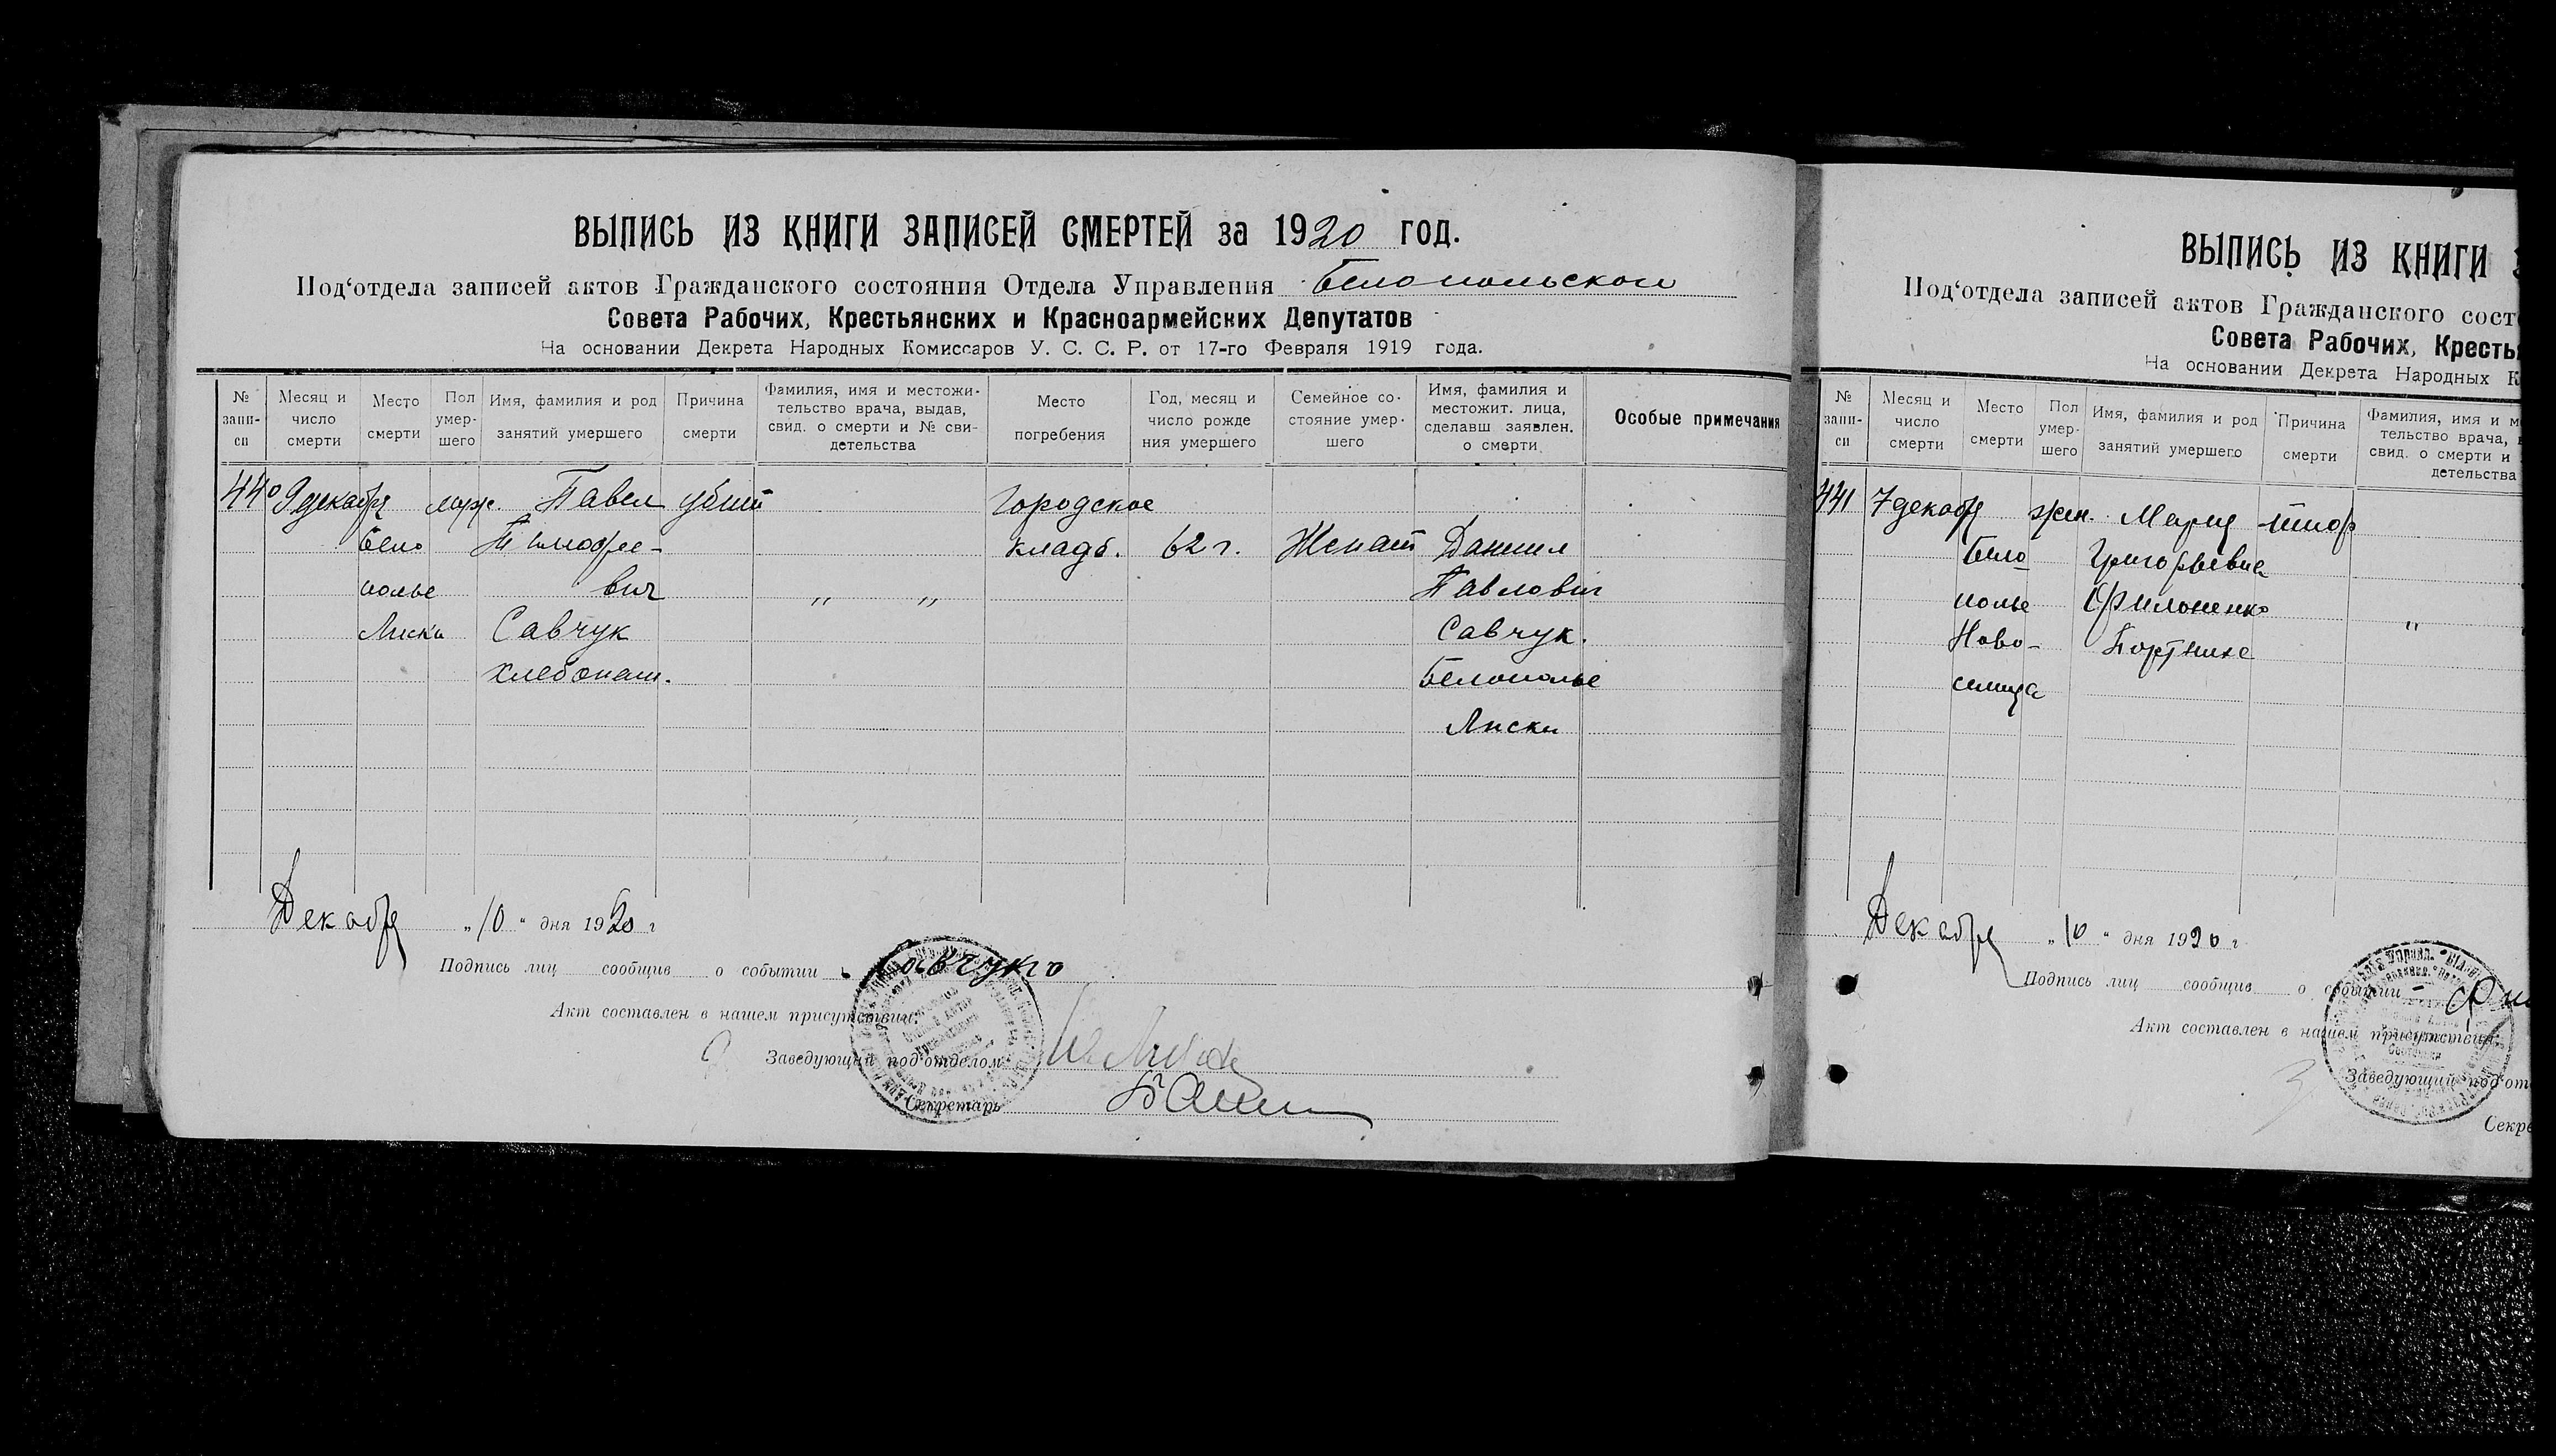 ВЫПИСЬ ИЗ КНИГИ ЗАПИСЕЙ СМЕРТЕЙ за 1920 год.
Под‘отдела записей актов Гражданского состояния Отдела Управления Белопольской
Совета Рабочих, Крестьянских и Красноармейских Депутатов
На основании Декрета Народных Комиссаров У. С. С. Р. от 17-го Февраля 1919 года.
№ запи-си
Месяц и число смерти
Место смерти
Пол умер-шего
Имя, фамилия и род занятий умершего
Причина смерти
Фамилия, имя и местожи-тельство врача, выдав, свид. о смерти и № сви-детельства
Место погребения
Год, месяц и число рожде ния умершего
Семейное со-стояние умер-шего
Имя, фамилия и местожит. лица, сделавш заявлен. о смерти.
Особые примечания
440 9 декабря муж. Павел убит Городское
Бело Тимофее- кладб. 62 г. Женат Даниил
полье вич " " Павлович
Лиски Савчук Савчук.
хлебопаш. Белополье
Лиски
Декабря „10“ дня 1920 г
Подпись лиц сообщив о событии Савчук
Акт составлен в нашем присутствии:
Заведующий под‘отделом
Секретарь
ВЫПИСЬ ИЗ КНИГИ
Под‘отдела записей актов Гражданского сост
Совета Рабочих, Кресть
На основании Декрета Народных К
№ запи-си
Месяц и число смерти
Место смерти
Пол умер-шего
Имя, фамилия и род занятий умершего
Причина смерти
Фамилия, имя и м
тельство врача,
свид. о смерти и
детельства
441 7 декабря жен. Мария тиф
Бело Григорьевна
полье Филоненко "
Ново- Портниха
селица
Декабря „10“ дня 1920 г
Подпись лиц сообщив о событии
Акт составлен в нашем присутствии:
Заведующий под‘от
Секре